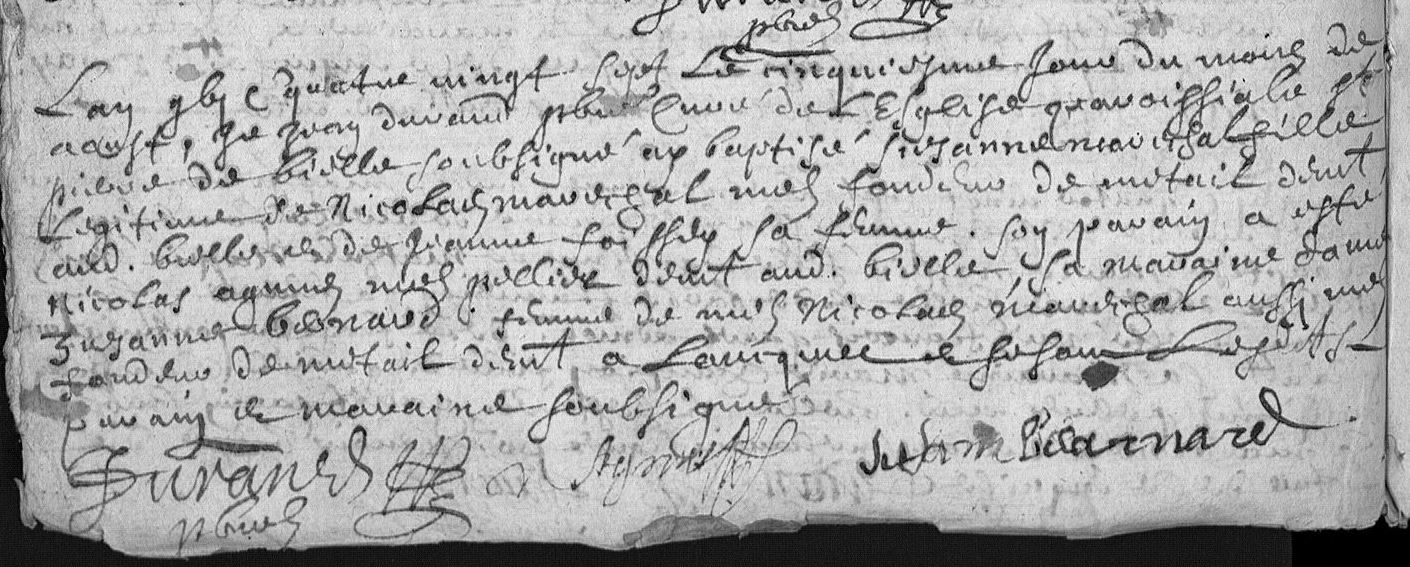 pbre
Lan xvi c quatre vingt sept Le cinquiesme Jour du mois de
aoust, Je Jean durand pbre Curé de L'Esglise paroissialle St
pierre de bielle soubsigné ay baptisé suzanne mareschal fille
Legitime de Nicolas mareschal me fondeur de metail demt
aud. bielle et de Jeanne sa femme. son parain a esté
Nicolas me pellier demt aud. bielle, sa maraine dame
Suzanne besnard femme de me Nicolas mareschal aussi me
fondeur de metail demt a et se sont Lesdts
parain et maraine soubsignés
Durand
pbre
Susanne Bearnard